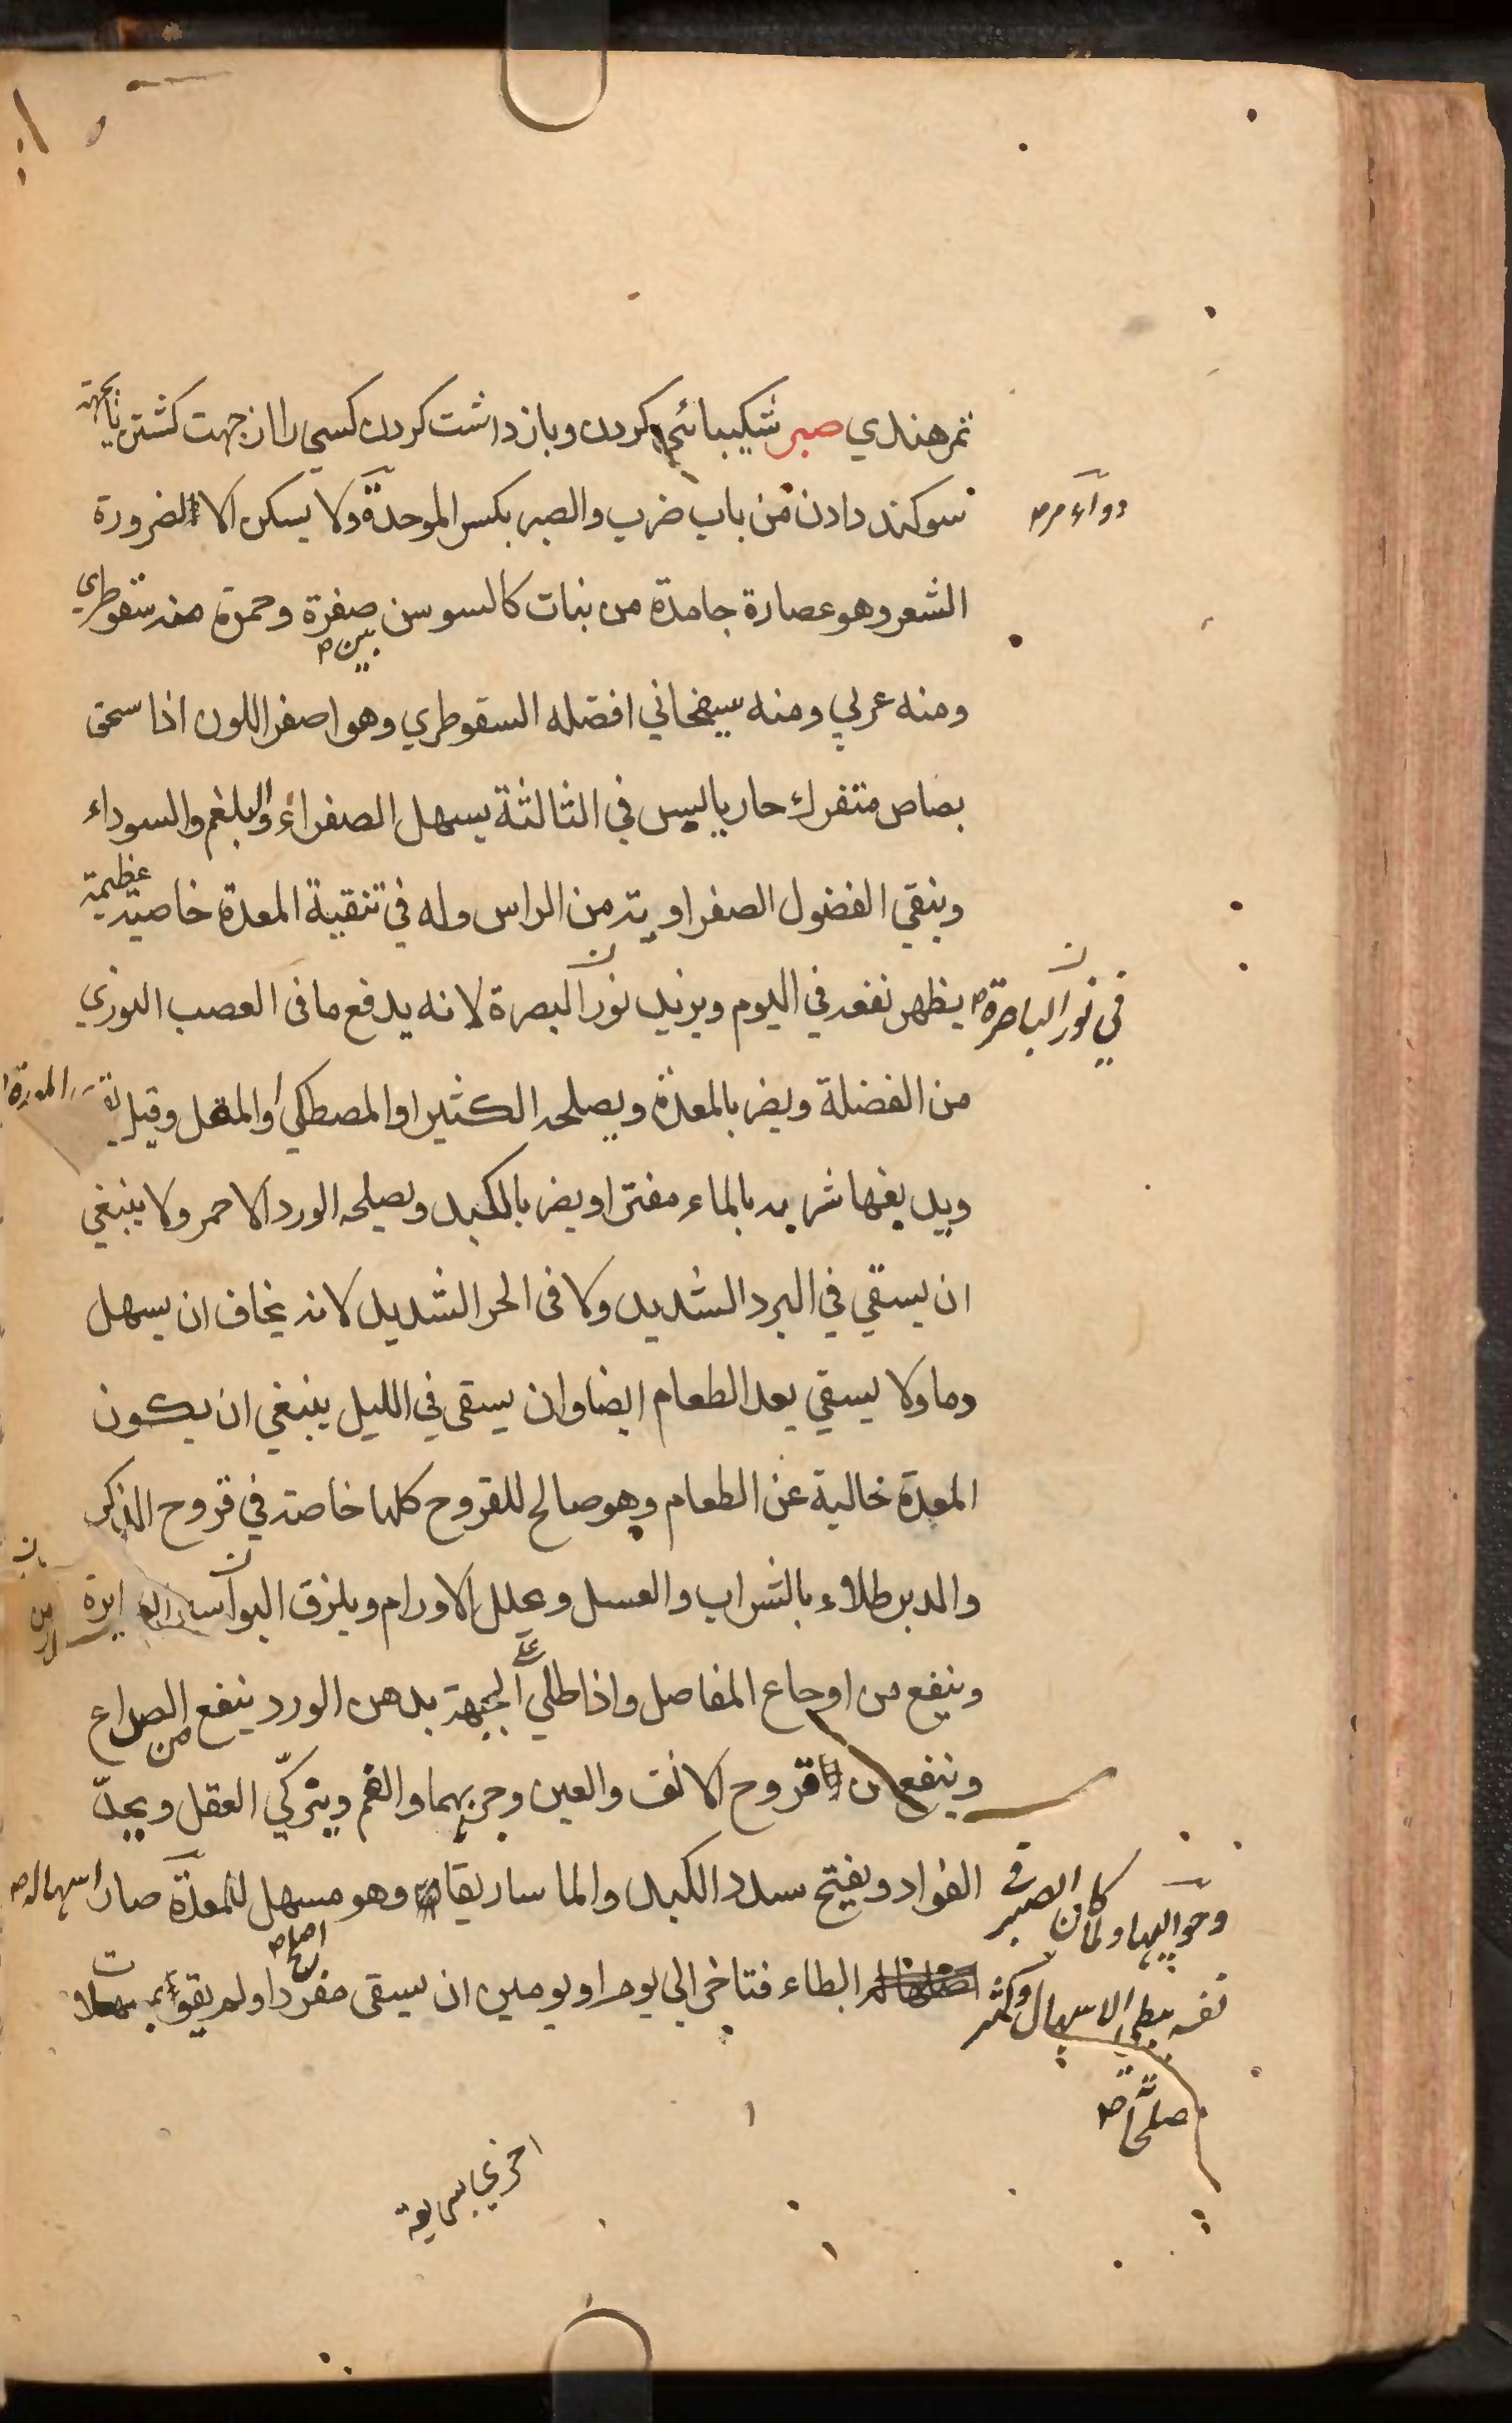 تمر هندي صبر شكيبائي كردن وباز داشت كردن كسي را از جهت كشتن يا بجهة
سوكند دادن من باب ضرب والصبر بكسر الموحدة ولا يسكن الا لضرورة
دواء مر صح
الشعر وهو عصارة جامدة من نبات كالسوسن صفرة وحمرة منه سقوطري
بين صح
ومنه عربي ومنه سيمخاني افضله السقوطري وهو اصفر اللون اذا سحق
بصاص متفرك حار يابس في الثالثة يسهل الصفراء والبلغم والسوداء
وينقي الفضول الصفراوية من الراس وله في تنقية المعدة خاصية عظيمة
يظهر نفعه في اليوم ويزيد نور البصرة لانه يدفع ما في العصب النوري
في نور الباصرة صح
من الفضلة ويضر بالمعدة ويصلحه الكثيرا والمصطكي والمقل وقيل
ويدفعها شربه بالماء مفترا ويضر بالكبد ويصلحه الورد الاحمر ولا ينبغي
ان يسقي في البرد الشديد ولا في الحر الشديد لانه يخاف ان يسهل
وما ولا يسقي بعد الطعام ايضا وان يسقى في الليل ينبغي ان يكون
المعدة خالية عن الطعام وهو صالح للقروح كلها خاصة في قروح الذكر
والدبر طلاء بالشراب والعسل وعلل الاورام ويلزق البواسير
وينفع من اوجاع المفاصل واذا طلي على الجبهة بدهن الورد ينفع من الصداع
وينفع من قروح الانف والعين وجربهما والفم ويزكّي العقل ويحدّ
الفواد ويفتح سدد الكبد والماساريقا وهو مسهل للمعدة صار اسهاله صح
وحواليها ولما كان الصبر في
ابطاء فتاخر الى يوم او يومين ان يسقى مفردا ولم يقو
نفسه بطي الاسهال وكثر
اصلاح صح
صلحا صح
اخري بسريعة